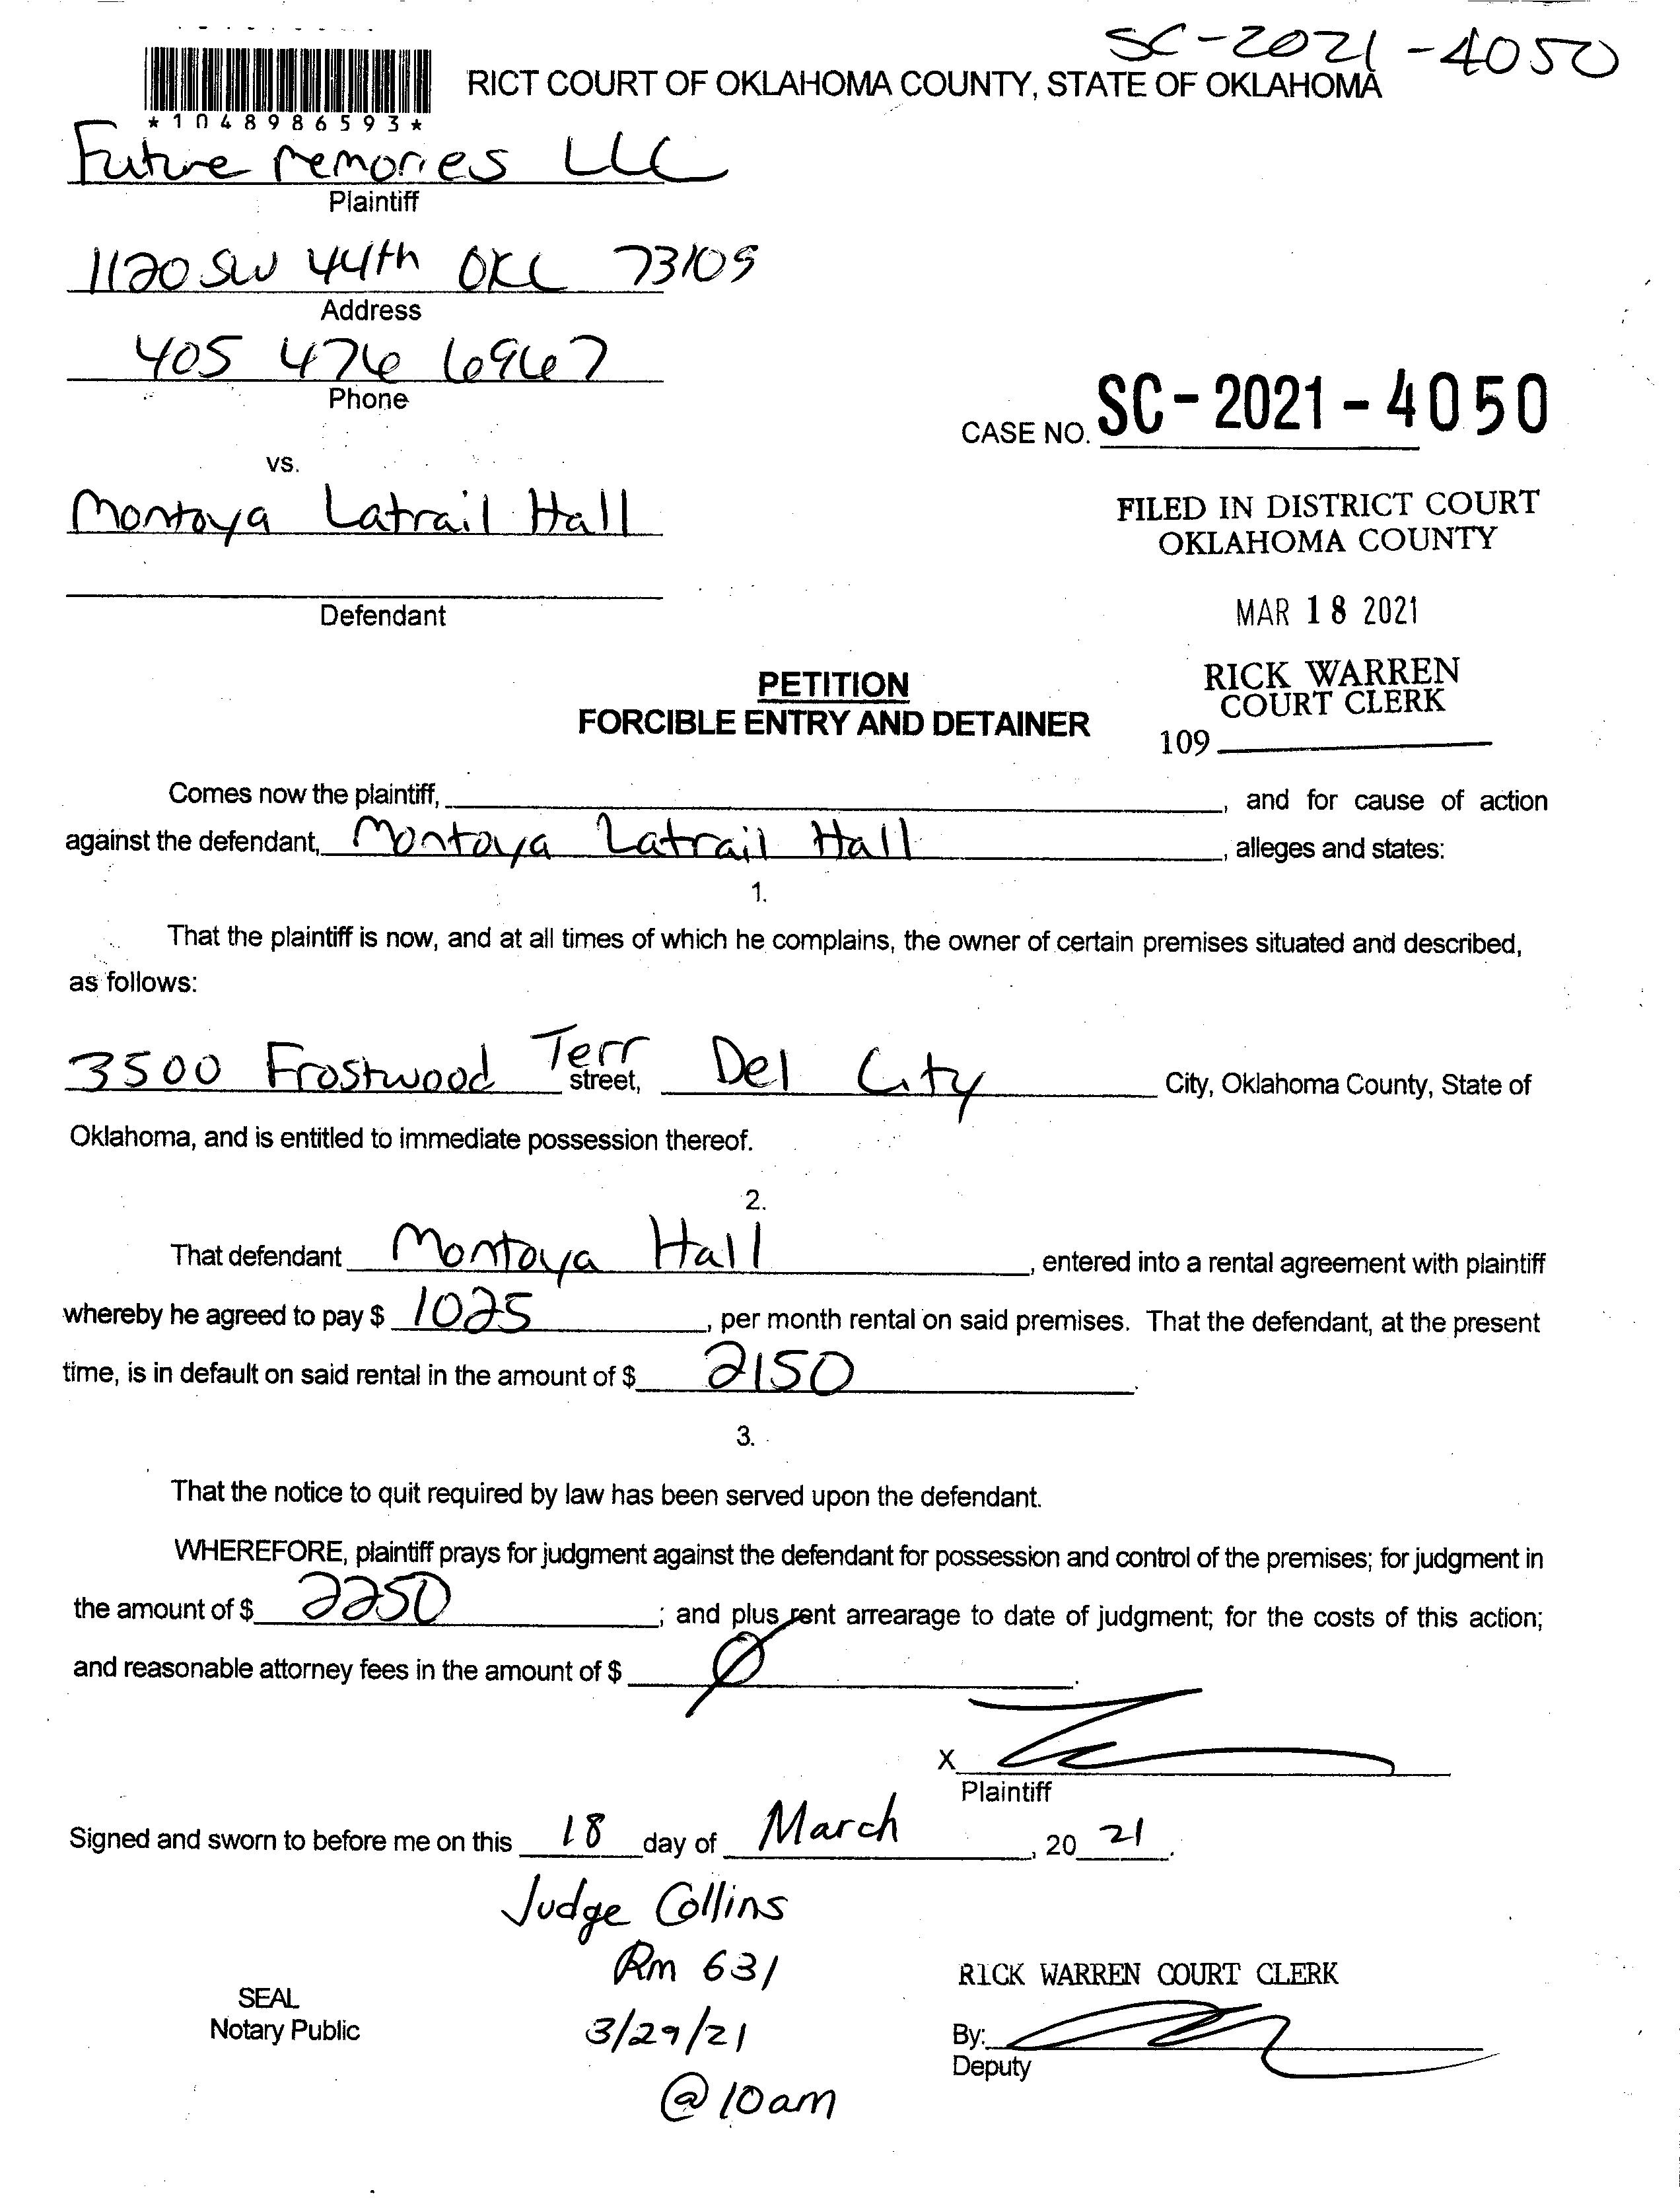 SC-2021-4050
RICT COURT OF OKLAHOMA COUNTY, STATE OF OKLAHOMA
*1048986593*
Future Memories LLC
Plaintiff
1120 SW 44th OKC 73109
Address
405 476 6967
Phone
CASE NO. SC-2021-4050
vs.
Montoya Latrail Hall
FILED IN DISTRICT COURT
OKLAHOMA COUNTY
Defendant
MAR 18 2021
PETITION
FORCIBLE ENTRY AND DETAINER
RICK WARREN
COURT CLERK
109
Comes now the plaintiff, , and for cause of action
against the defendant, Montoya Latrail Hall , alleges and states:
1.
That the plaintiff is now, and at all times of which he complains, the owner of certain premises situated and described,
as follows:
3500 Frostwood Terr street, Del City City, Oklahoma County, State of
Oklahoma, and is entitled to immediate possession thereof.
2.
That defendant Montoya Hall , entered into a rental agreement with plaintiff
whereby he agreed to pay $ 1025 , per month rental on said premises. That the defendant, at the present
time, is in default on said rental in the amount of $ 2150 .
3.
That the notice to quit required by law has been served upon the defendant.
WHEREFORE, plaintiff prays for judgment against the defendant for possession and control of the premises; for judgment in
the amount of $ 2250 ; and plus rent arrearage to date of judgment; for the costs of this action;
and reasonable attorney fees in the amount of $ Ø .
X
Plaintiff
Signed and sworn to before me on this 18 day of March , 20 21 .
Judge Collins
Rm 631
3/29/21
@ 10am
SEAL
Notary Public
RICK WARREN COURT CLERK
By:
Deputy